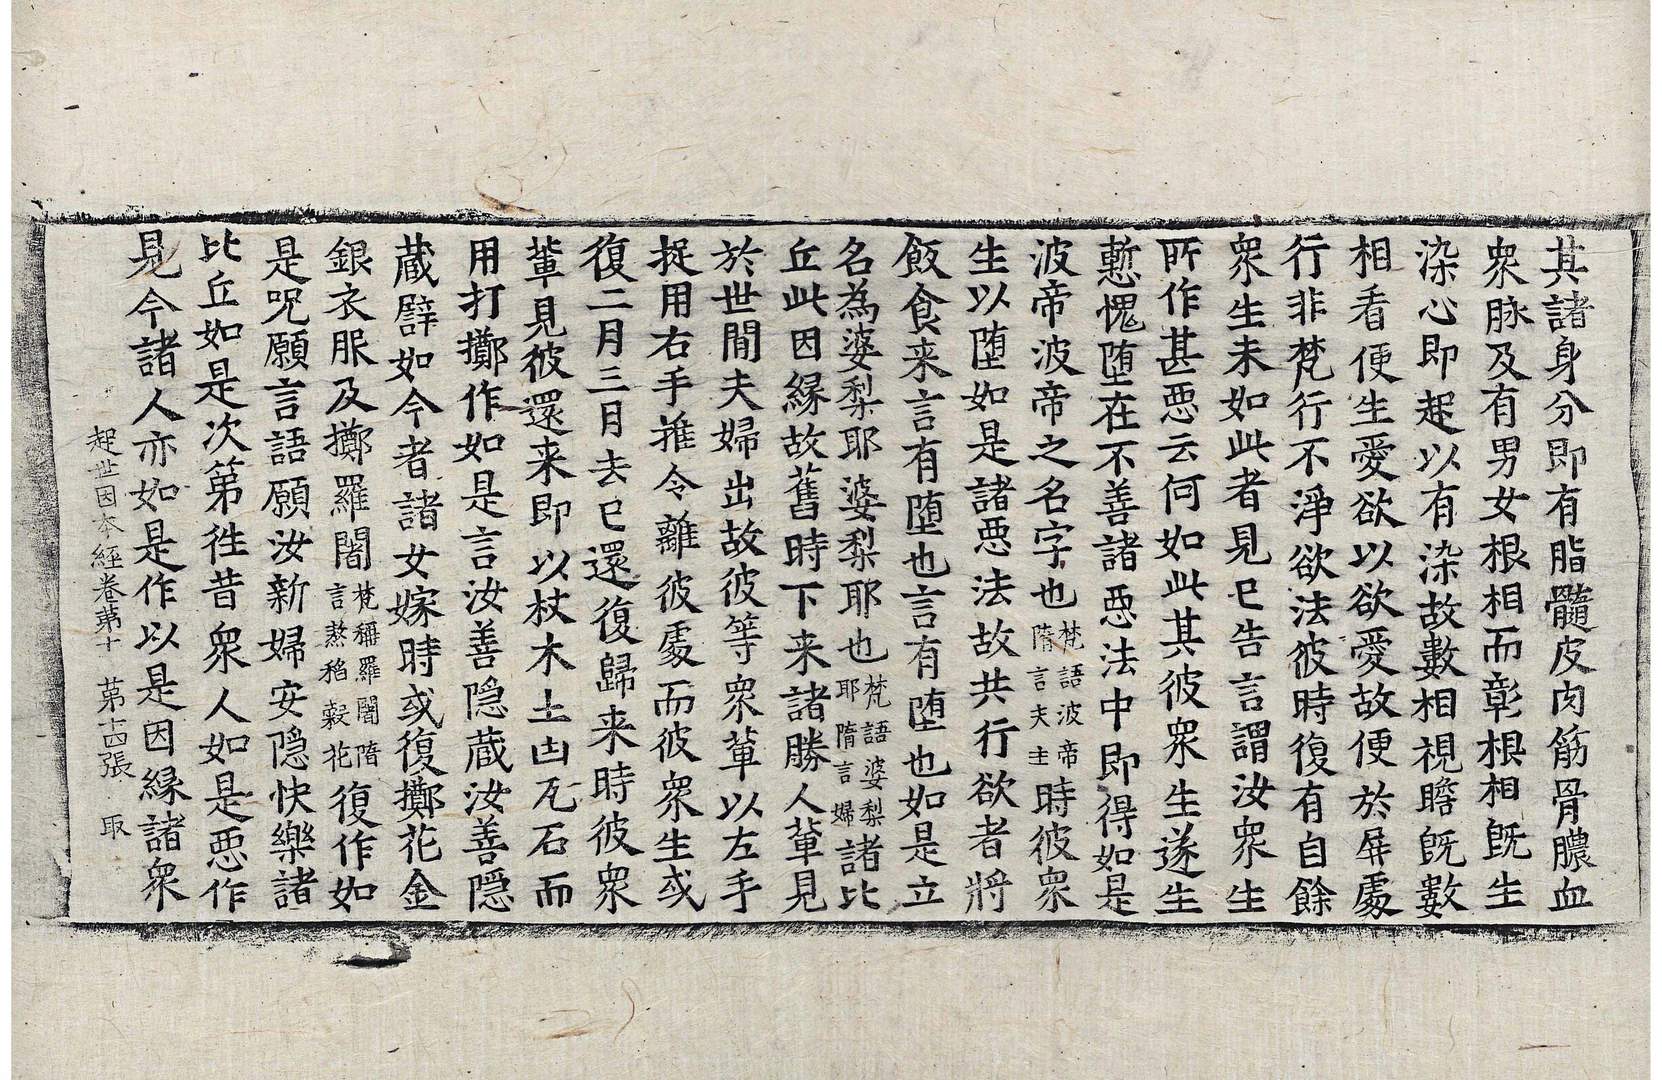 其諸身分即有脂髓皮肉筋骨膿血
衆脉及有男女根相而彰根相旣生
染心即起以有染故數相視瞻旣數
相看便生愛欲以欲愛故便於屏處
行非梵行不淨欲法彼時復有自餘
衆生未如此者見已告言謂汝衆生
所作甚惡云何如此其彼衆生遂生
慙愧墮在不善諸惡法中即得如是
波帝波帝之名字也梵語波帝隋言夫主時彼衆
生以墮如是諸惡法故共行欲者將
飯食来言有墮也言有墮也如是立
名為婆梨耶婆梨耶也梵語婆梨耶隋言婦諸比
丘此因縁故舊時下来諸勝人輩見
於世閒夫婦出故彼等衆輩以左手
捉用右手推令離彼處而彼衆生或
復二月三月去已還復歸来時彼衆
輩見彼還来即以杖木土凷瓦石而
用打擲作如是言汝善隠蔵汝善隠
蔵譬如今者諸女嫁時或復擲花金
銀衣服及擲羅闍梵稱羅闍隋言熬稻穀花復作如
是呪願言語願汝新婦安隠快樂諸
比丘如是次第徃昔衆人如是惡作
見今諸人亦如是作以是因縁諸衆
起世因本經卷第十 第十四張 取